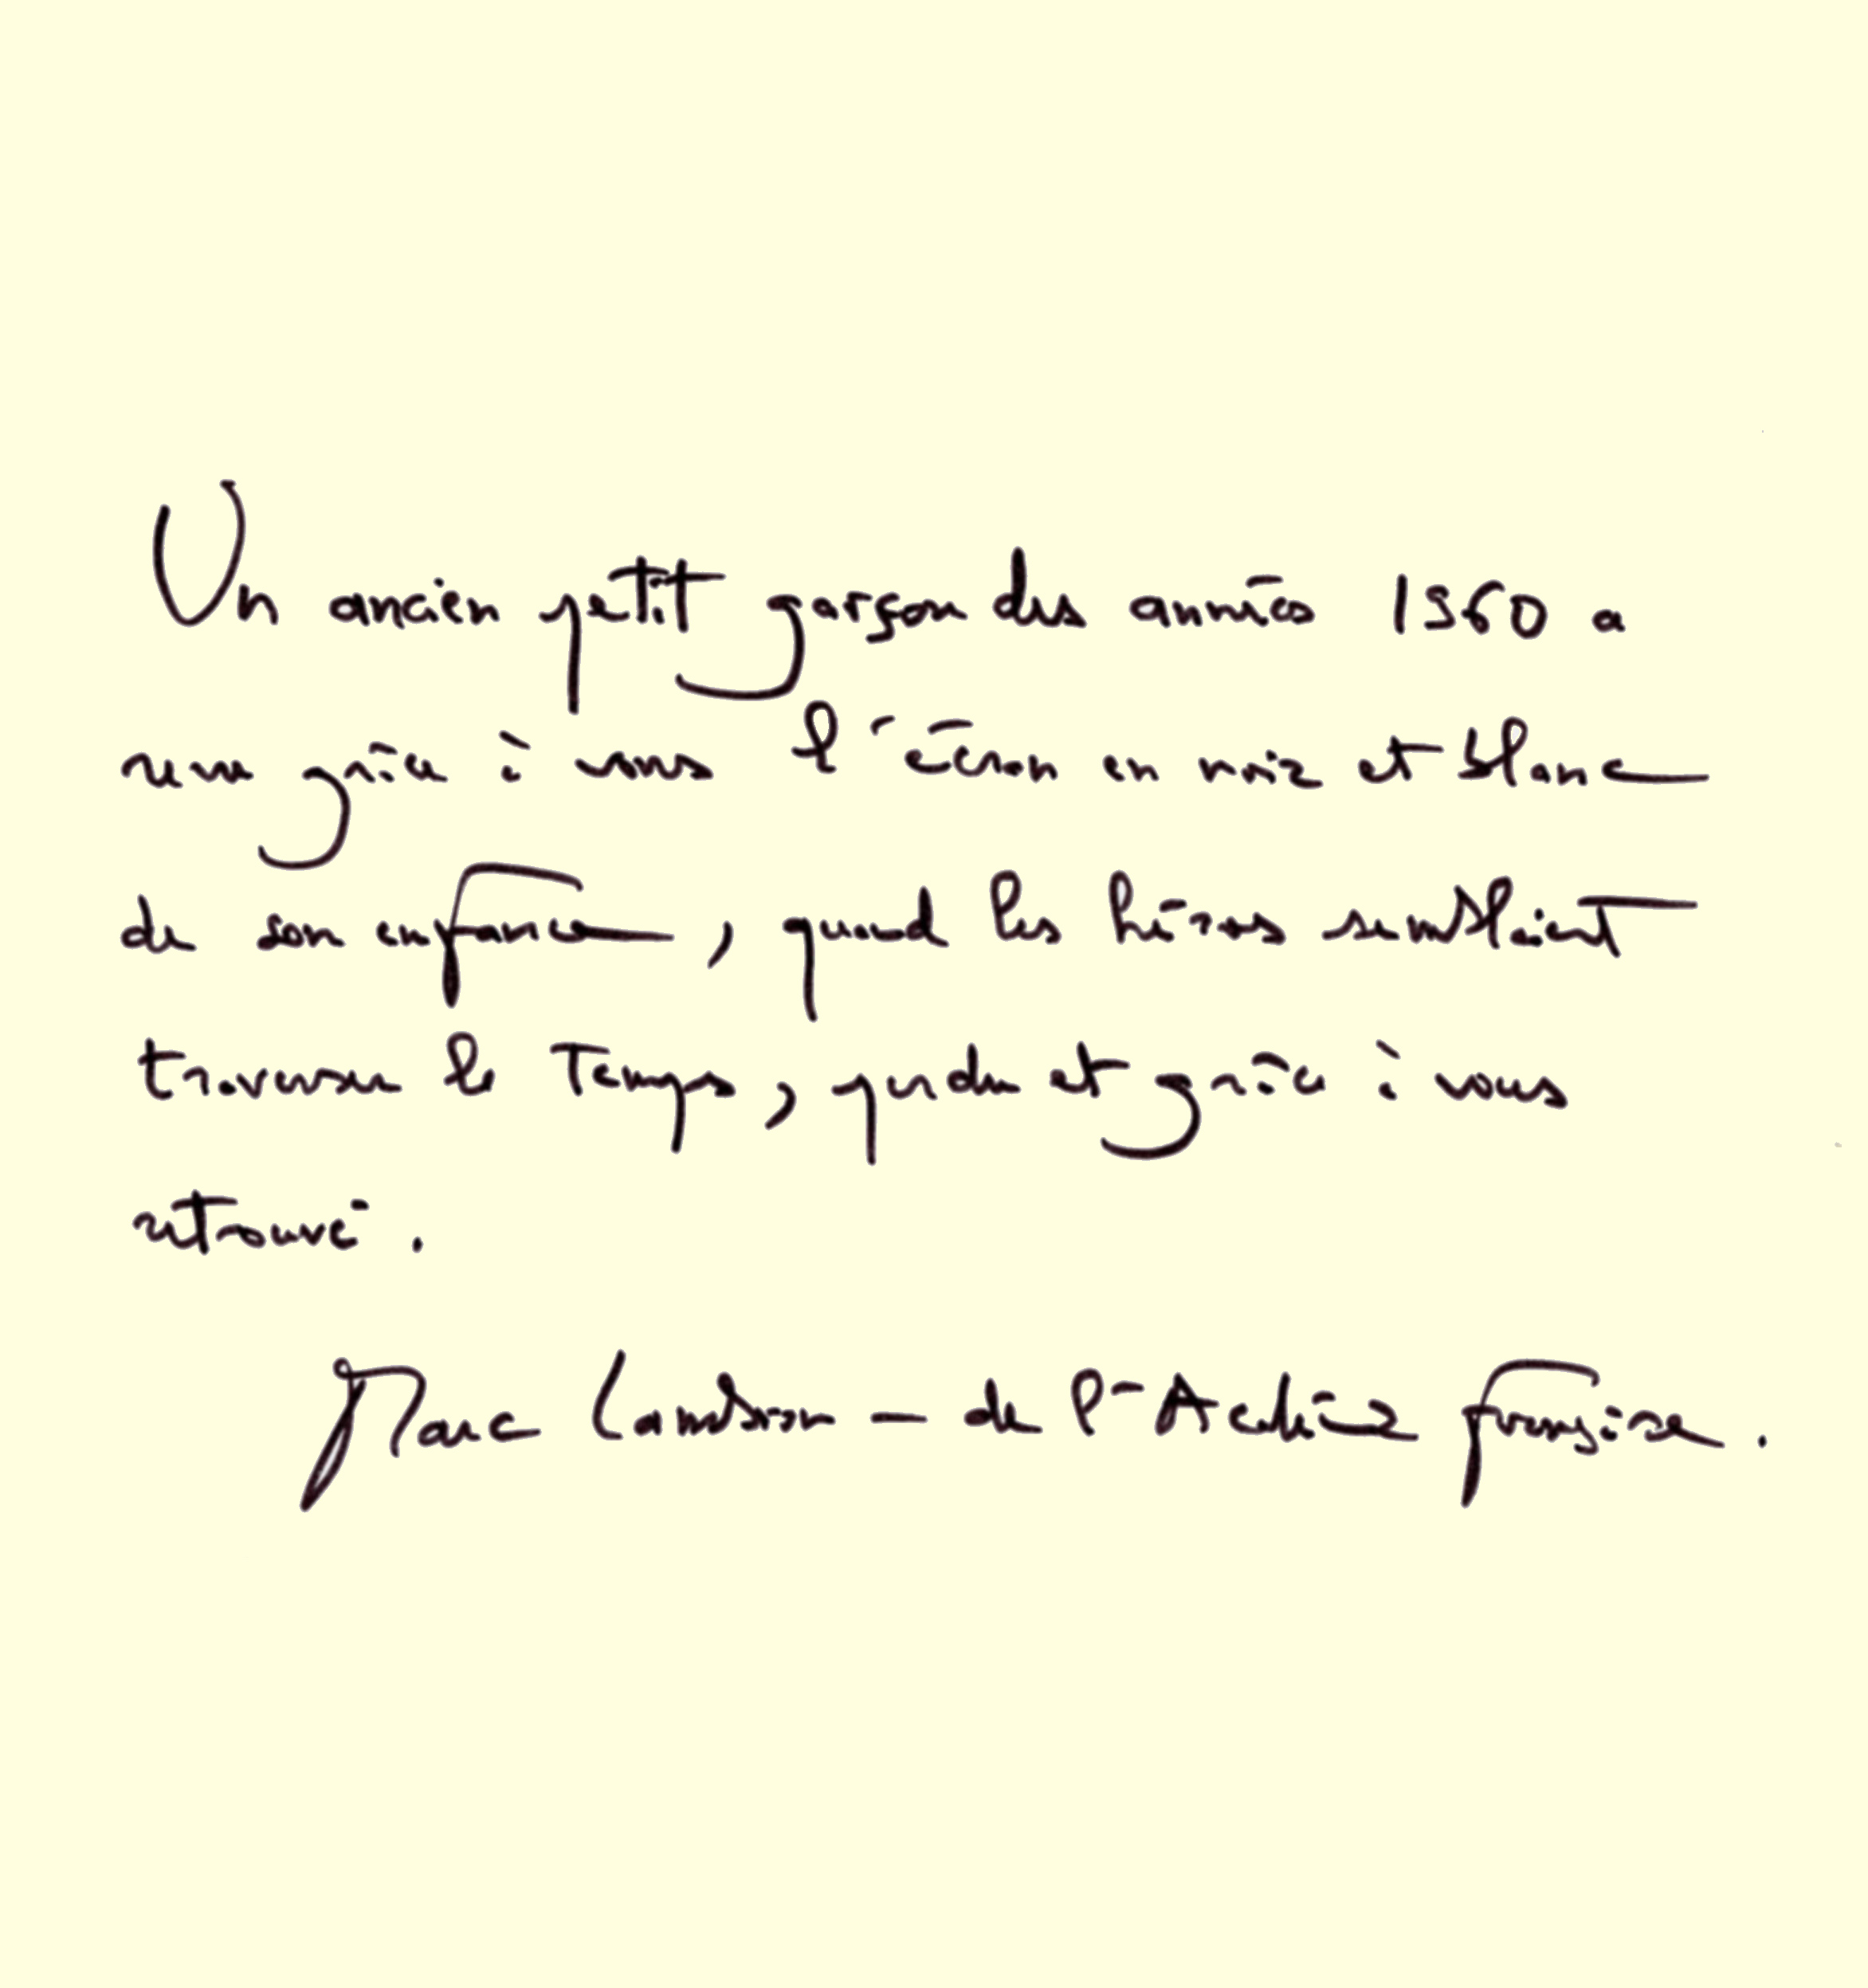 Un ancien petit garçon des années 1960 a
revu grâce à vous l'écran en noir et blanc
de son enfance, quand les héros semblaient
traverser le Temps, perdu et grâce à vous
retrouvé.
Marc Lambron – de l'Académie française.